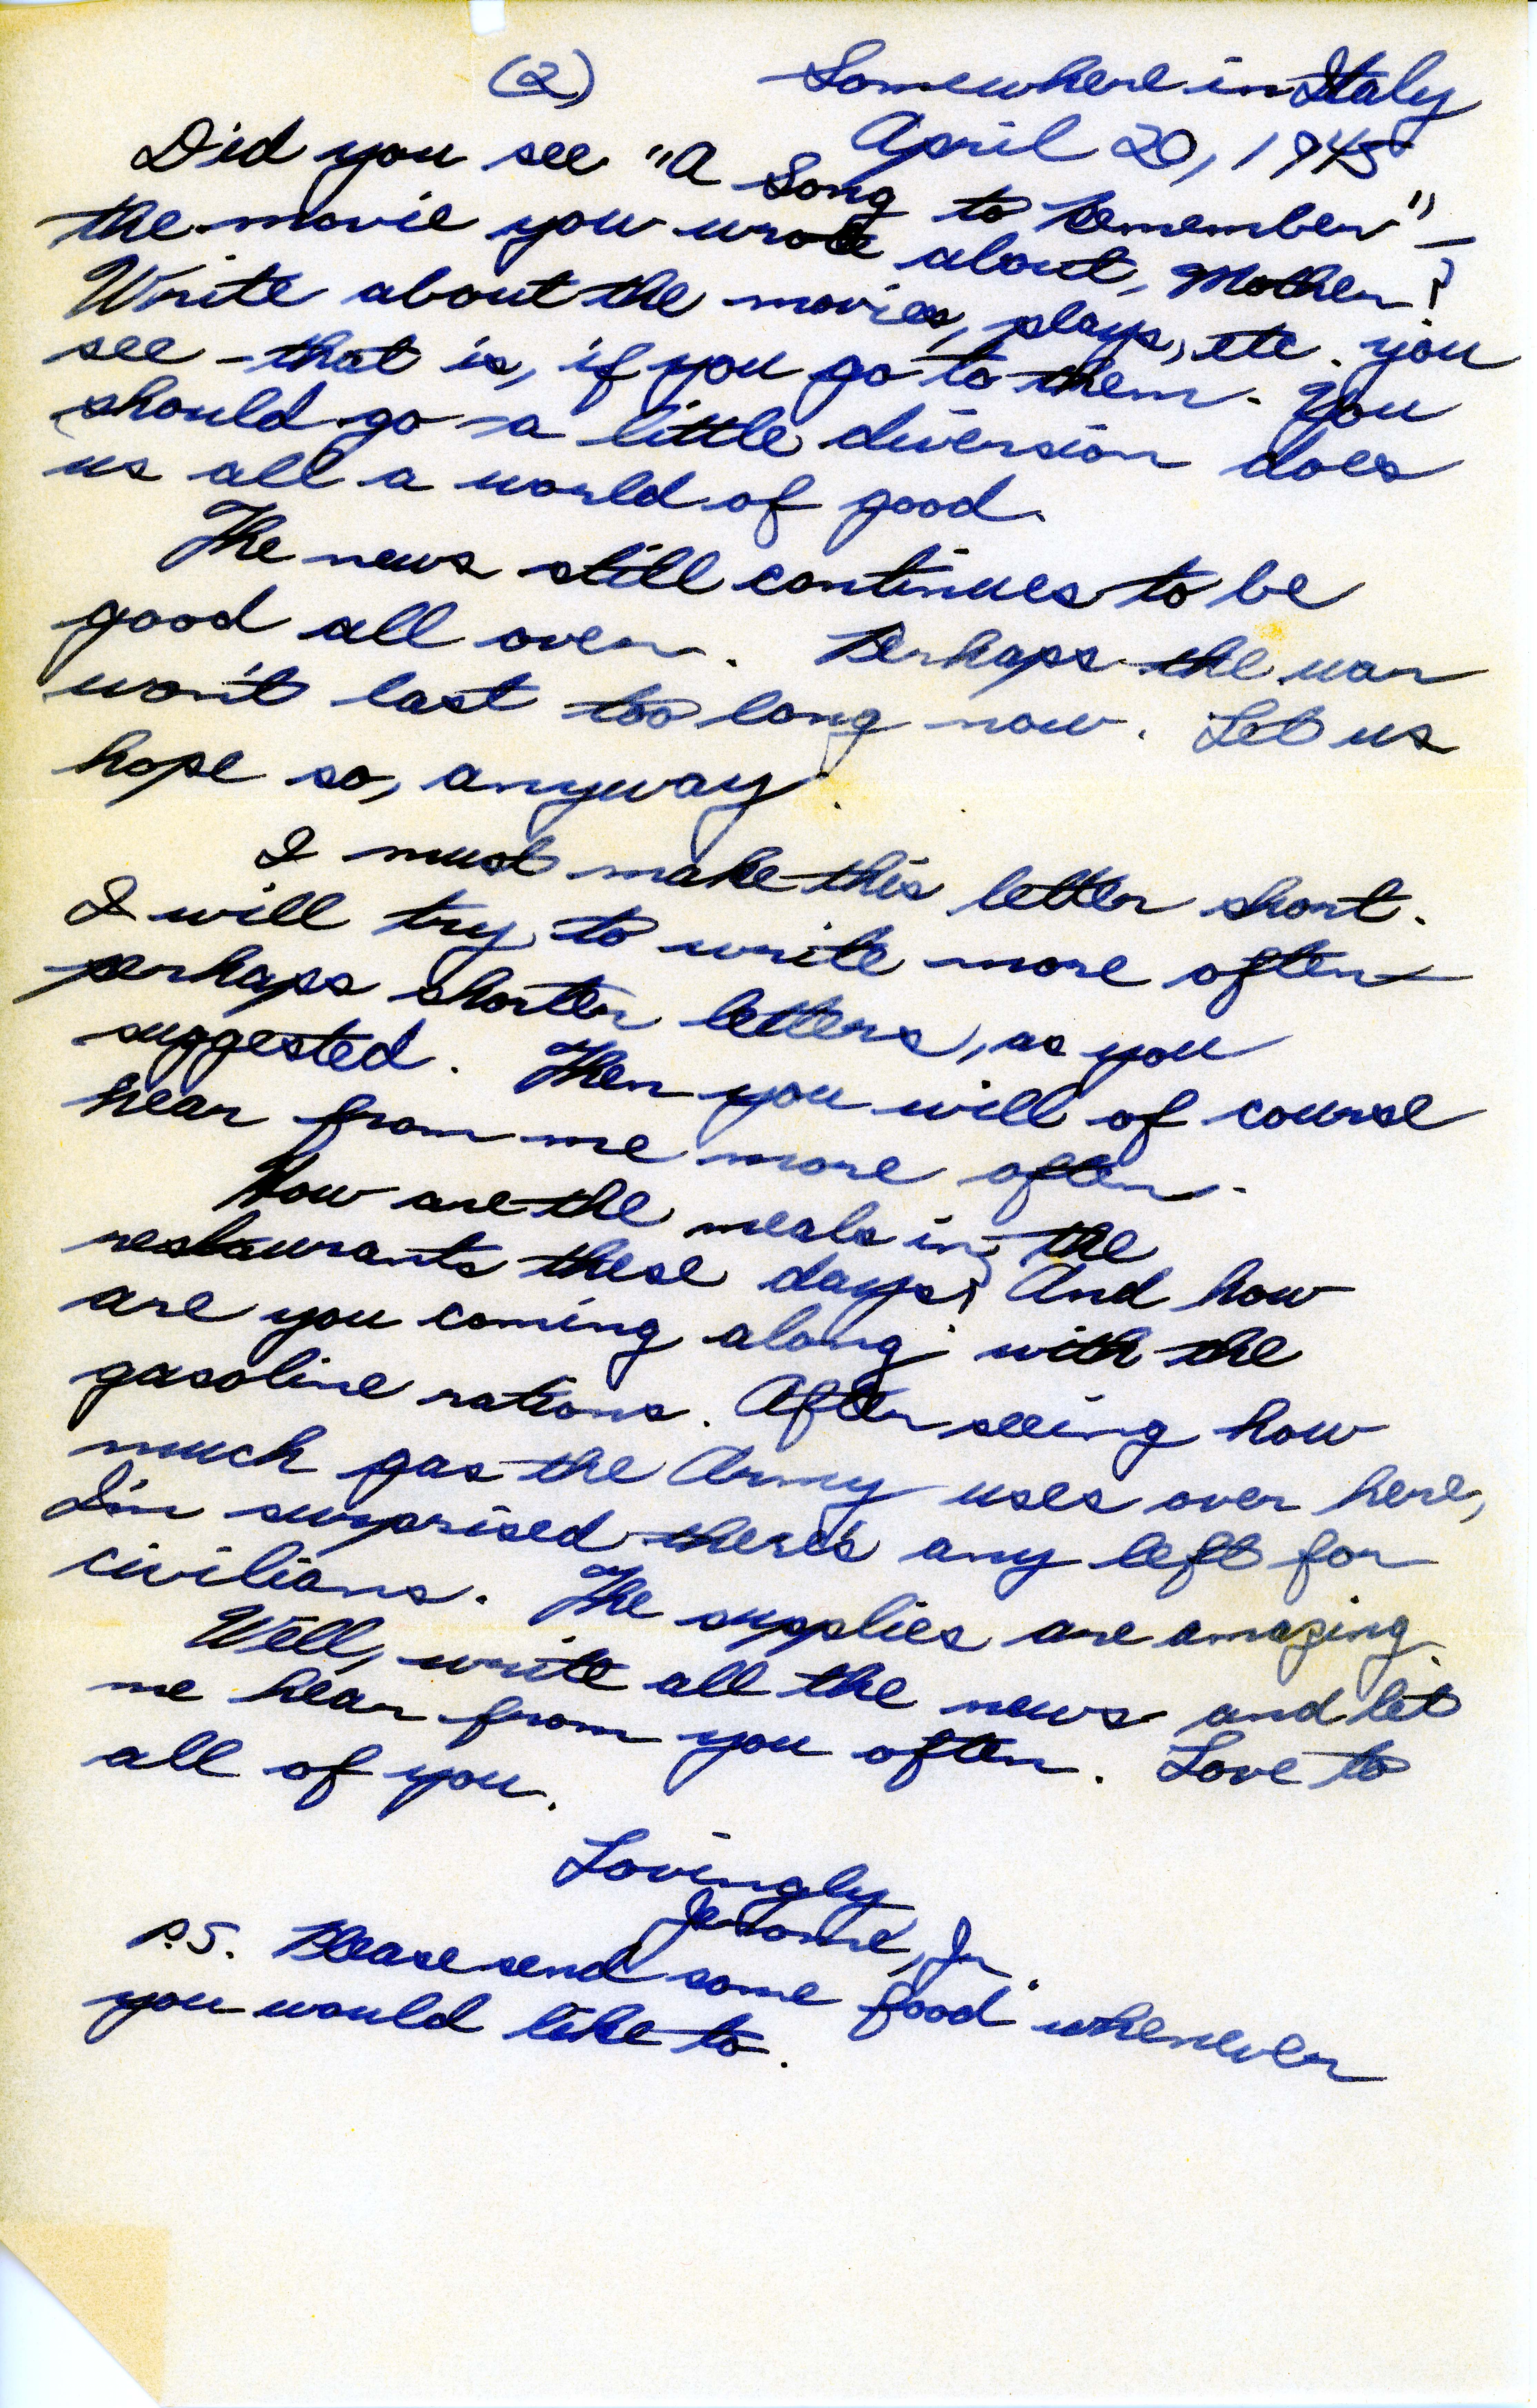 (2) Somewhere in Italy
April 20, 1945
Did you see "A Song to Remember" —
the movie you wrote about, Mother?
Write about the movies, plays, etc. you
see - that is, if you go to them. You
should go - a little diversion does
us all a world of good.
The news still continues to be
good all over. Perhaps the war
won't last too long now. Let us
hope so, anyway.
I must make this letter short.
I will try to write more often -
perhaps shorter letters, as you
suggested. Then you will of course
hear from me more often.
How are the meals in the
restaurants these days? And how
are you coming along with the
gasoline rations. After seeing how
much gas the Army uses over here,
I'm surprised there's any left for
civilians. The supplies are amazing.
Well, write all the news and let
me hear from you often. Love to
all of you.
Lovingly
Jerome, Jr.
P.S. Please send some food whenever
you would like to.